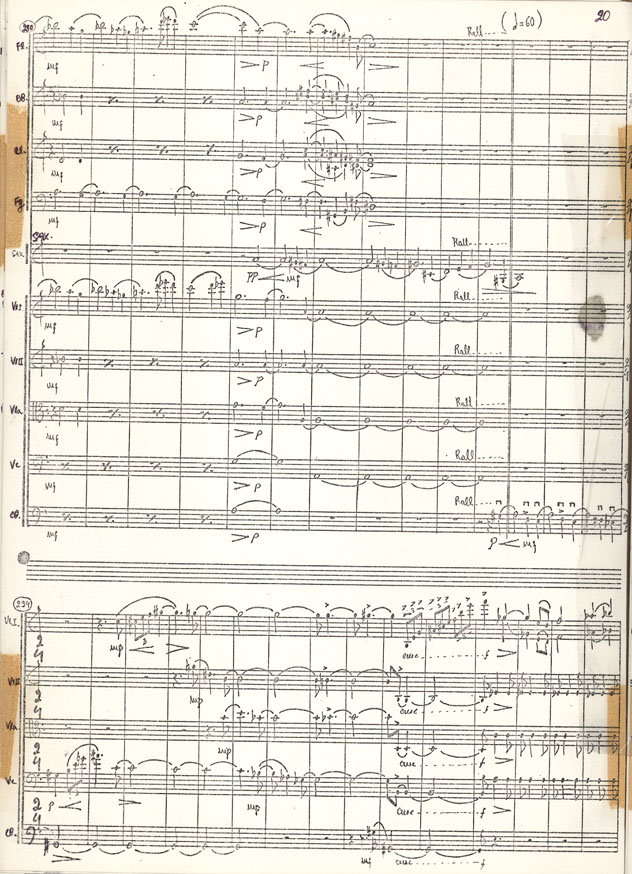 20
(♩=60)
Rall......
Fl.
mf > p < >
OB.
mf > p < >
Cl.
mf > p < >
Fg.
mf > p <
SAX.
Rall......
SAX
PP < mf
VnI
Rall......
mf > p
VlII
Rall......
mf > p
Vla
Rall......
mf > p
Vc
Rall......
mf > p
CB.
Rall......
mf > p
p < mf
Vl.I
2 4
mp < 3 >
cresc......... f >
VlII
2 4
mp
cresc......... f >
Vla
2 4
mp
cresc......... f >
Vc
2 4
p < > mp
cresc......... f >
CB.
2 4
> mf cresc......... f